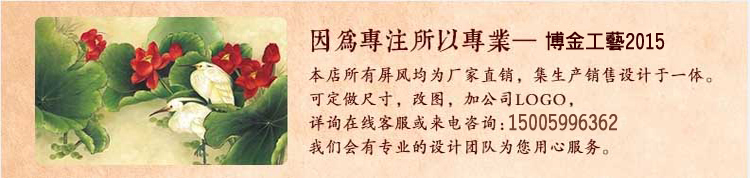 因為專注所以專業— 博金工藝2015
本店所有屏风均为厂家直销，集生产销售设计于一体。
可定做尺寸，改图，加公司LOGO，
详询在线客服或来电咨询:15005996362
我们会有专业的设计团队为您用心服务。